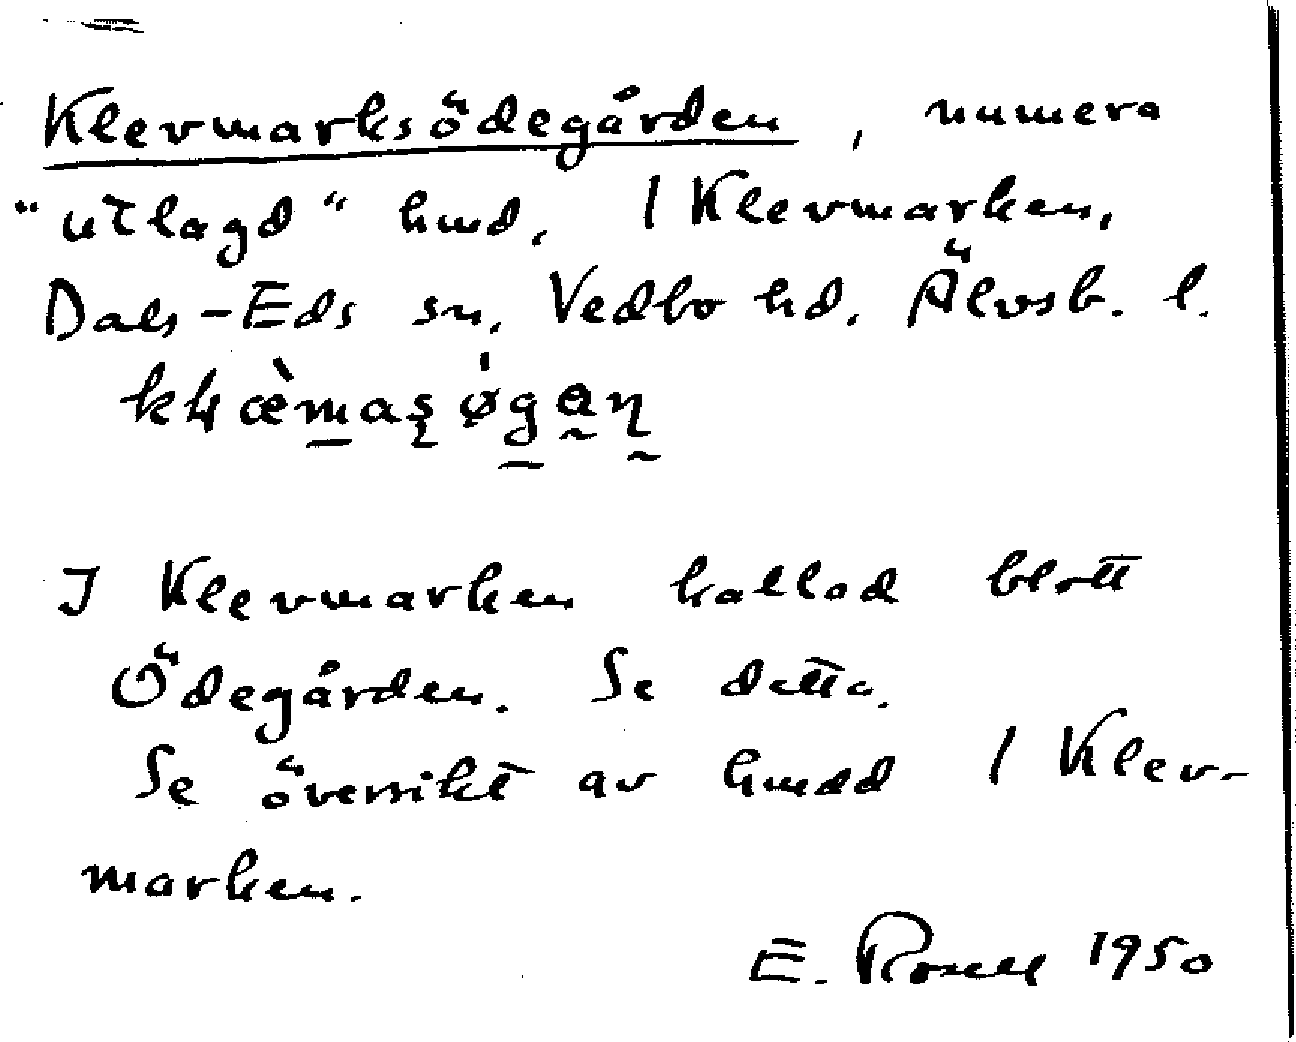 Klevmarksödegården, numera
"utlagd" hmd, 1 Klevmarken,
Dals-Eds sn, Vedbo hd. Älvsb. l.
I Klevmarken kallad blott
Ödegården. Se detta.
Se översikt av hmdd 1 Klev-
marken.
E. Rosell 1950